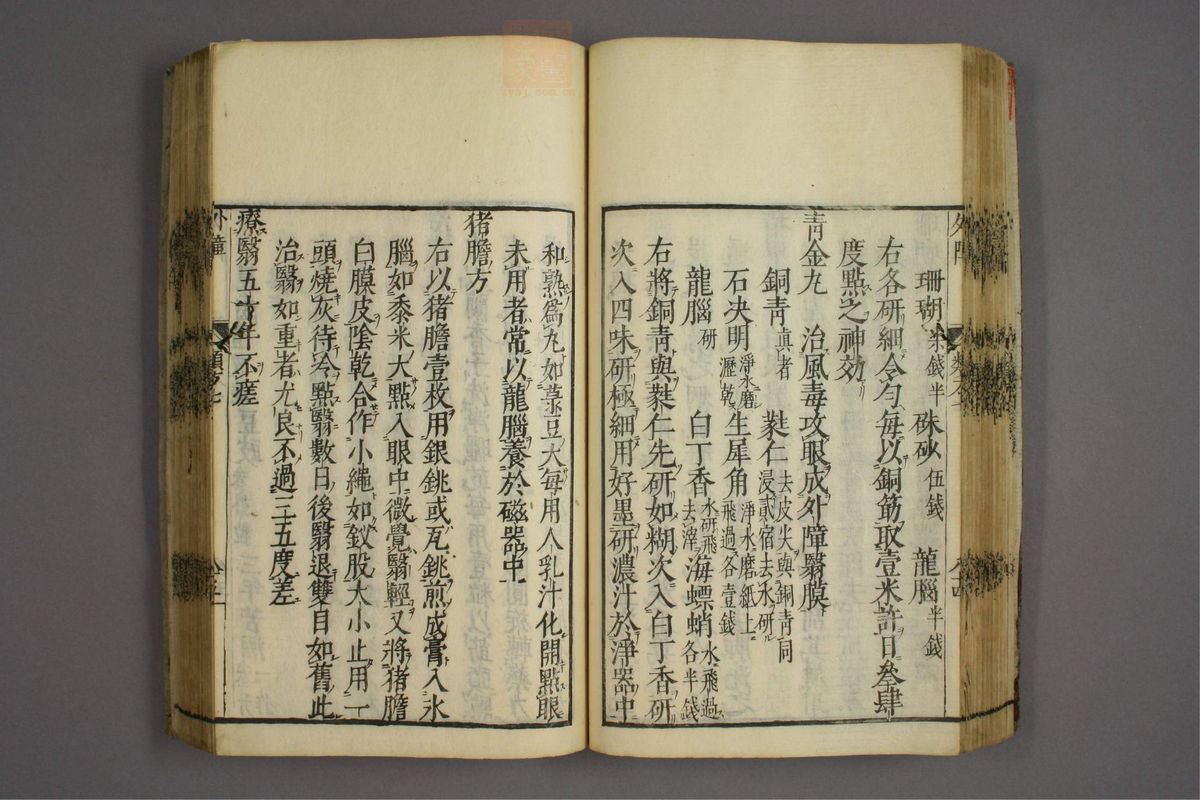 珊瑚 柒錢半 硃砂 伍錢 龍腦 半錢
右各研細令勻每以銅筯取壹米許日叁肆
度點之神効
青金丸 治風毒攻眼成外障翳膜
銅青 真者 蕤仁 去皮尖與銅青同浸貳宿去水研
石決明 淨水磨瀝乾 生犀角 淨水磨紙上飛過各壹錢
龍腦 研 白丁香 水研飛去滓 海螵蛸 水飛過各半錢
右將銅青與蕤仁先研如糊次入白丁香研
次入四味研極細用好墨研濃汁於淨器中
和熟爲丸如菉豆大每用人乳汁化開點眼
未用者常以龍腦養於磁器中
猪膽方
右以猪膽壹枚用銀銚或瓦銚煎成膏入氷
腦如黍米大點入眼中微覺翳輕又將猪膽
白膜皮陰乾合作小繩如釵股大小止用一
頭燒灰待冷點翳數日後翳退雙目如舊此
治翳如重者尤良不過三五度差
療翳五十年不瘥